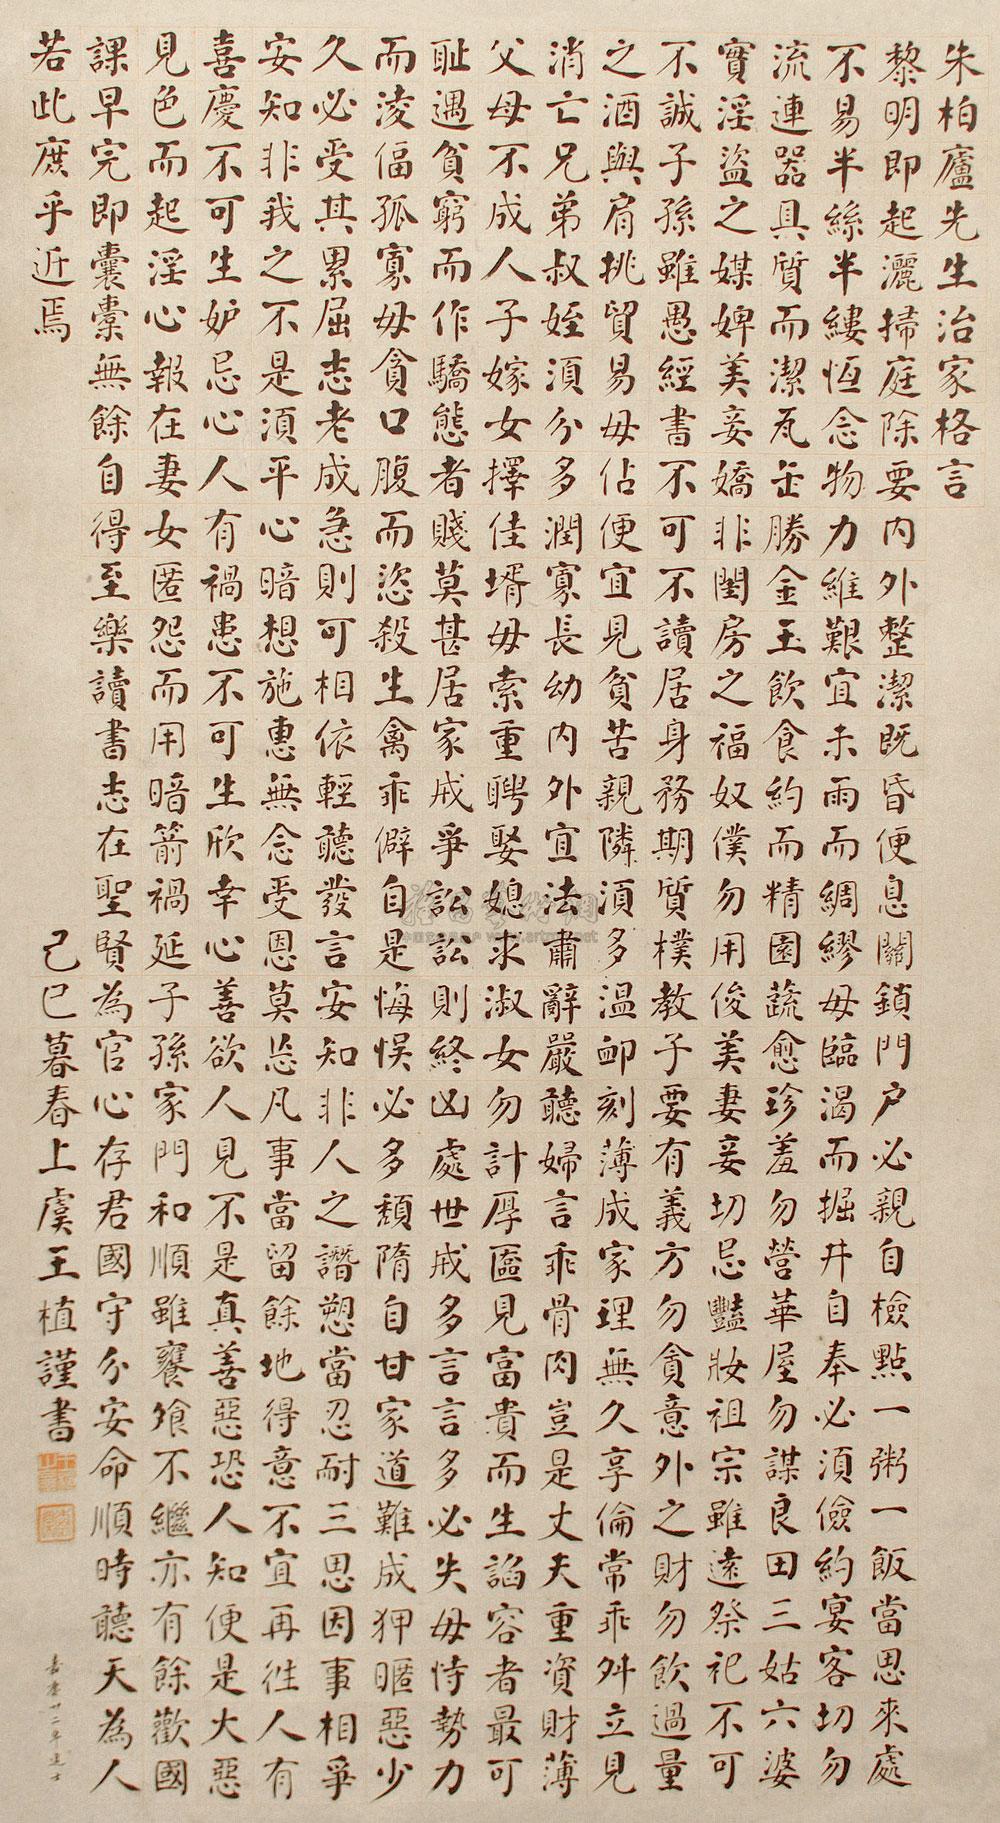 朱柏廬先生治家格言
黎明即起灑掃庭除要內外整潔既昏便息關鎖門户必親自檢點一粥一飯當思來處
不易半絲半縷恆念物力維艱宜未雨而綢繆毋臨渴而掘井自奉必須儉約宴客切勿
流連器具質而潔瓦缶勝金玉飲食約而精園蔬愈珍羞勿營華屋勿謀良田三姑六婆
實淫盜之媒婢美妾嬌非閨房之福奴僕勿用俊美妻妾切忌豔妝祖宗雖遠祭祀不可
不誠子孫雖愚經書不可不讀居身務期質樸教子要有義方勿貪意外之財勿飲過量
之酒與肩挑貿易毋佔便宜見貧苦親隣須多温卹刻薄成家理無久享倫常乖舛立見
消亡兄弟叔姪須分多潤寡長幼內外宜法肅辭嚴聽婦言乖骨肉豈是丈夫重資財薄
父母不成人子嫁女擇佳壻毋索重聘娶媳求淑女勿計厚匳見富貴而生諂容者最可
耻遇貧窮而作驕態者賤莫甚居家戒爭訟訟則終凶處世戒多言言多必失毋恃勢力
而淩偪孤寡毋貪口腹而恣殺生禽乖僻自是悔悞必多頹隋自甘家道難成狎暱惡少
久必受其累屈志老成急則可相依輕聽發言安知非人之譖愬當忍耐三思因事相爭
安知非我之不是須平心暗想施惠無念受恩莫忘凡事當留餘地得意不宜再徃人有
喜慶不可生妒忌心人有禍患不可生欣幸心善欲人見不是真善惡恐人知便是大惡
見色而起淫心報在妻女匿怨而用暗箭禍延子孫家門和順雖饔飧不繼亦有餘歡國
課早完即囊橐無餘自得至樂讀書志在聖賢為官心存君國守分安命順時聽天為人
若此庶乎近焉
己巳暮春上虞王植謹書
嘉慶廿二年進士